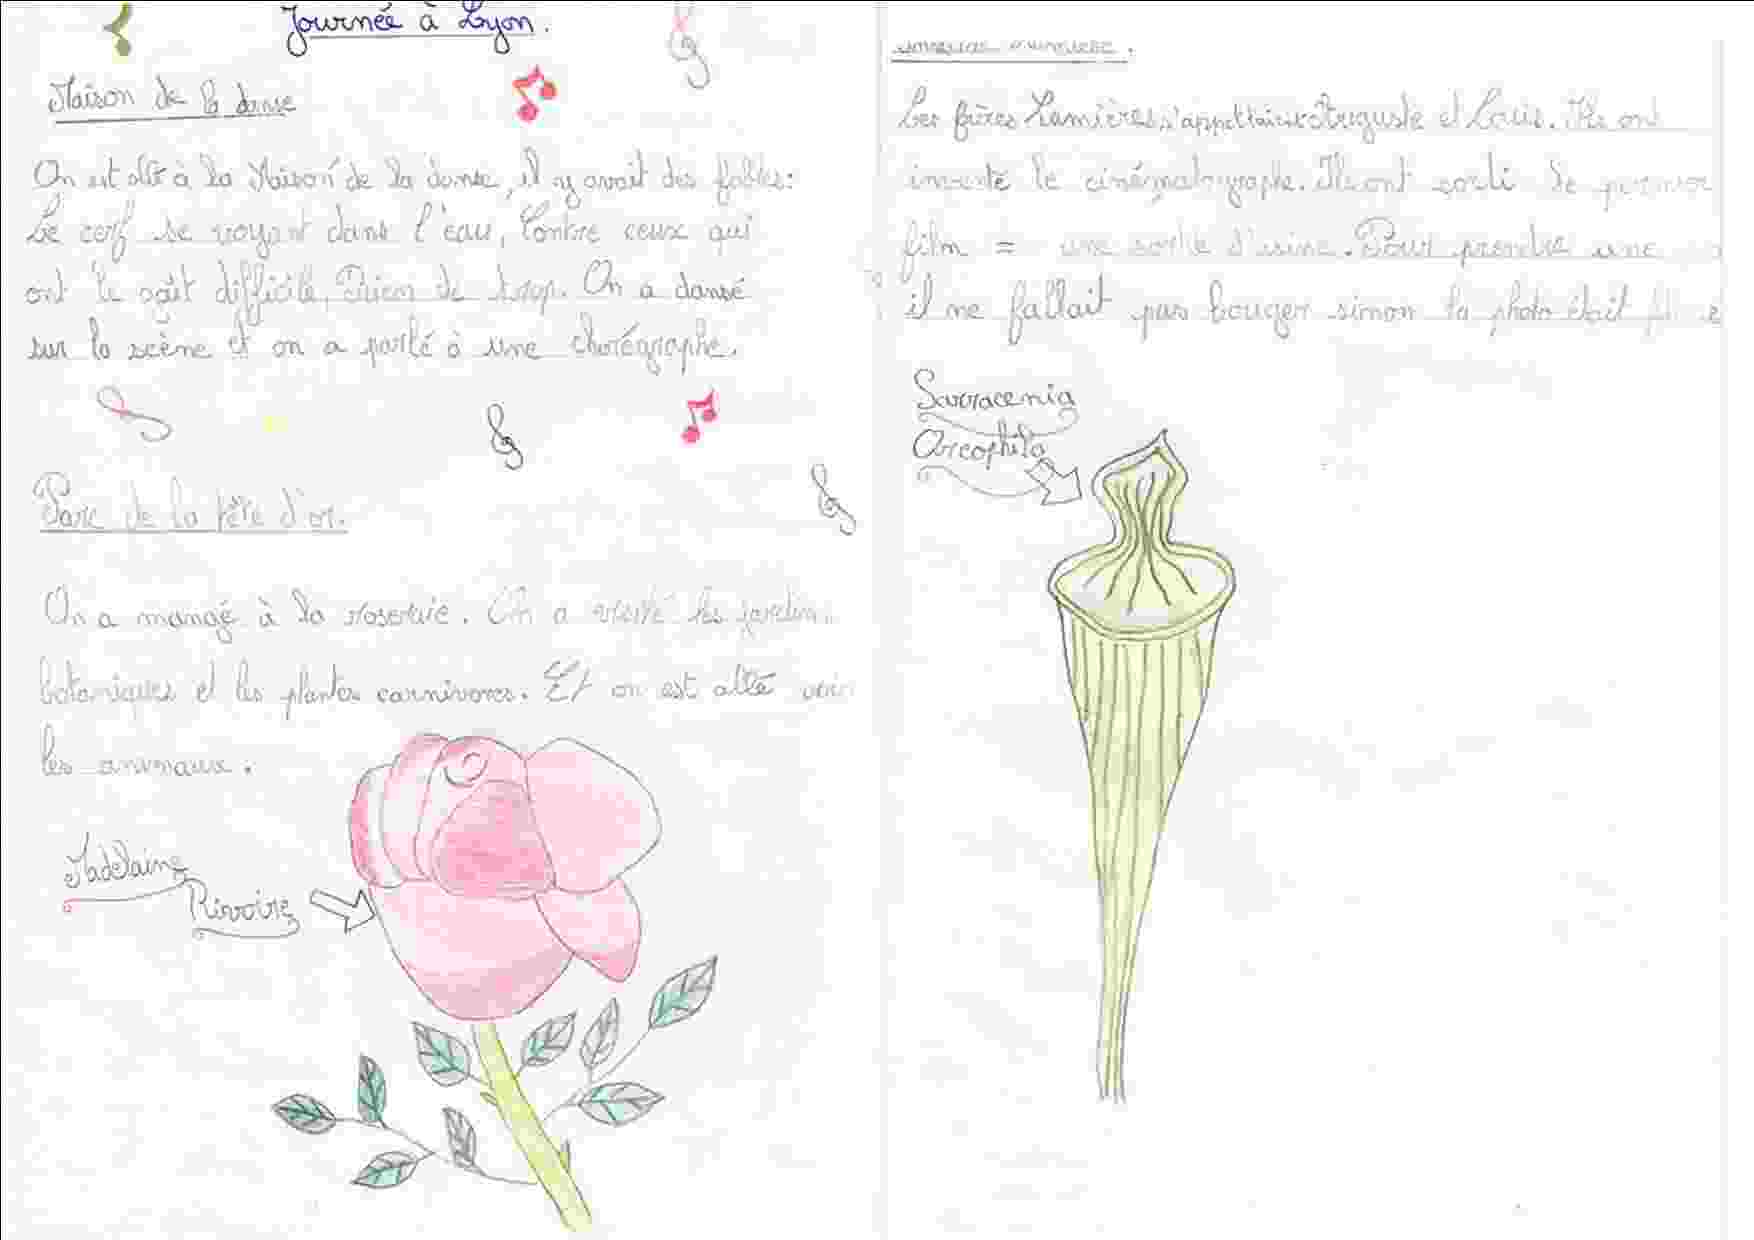 Journée à Lyon.
Maison de la danse
On est allé à la Maison de la danse, il y avait des fables:
Le cerf se voyant dans l'eau, Contre ceux qui
ont le goût difficile, Rien de trop. On a dansé
sur la scène et on a parlé à une chorégraphe.
Parc de la tête d'or.
On a mangé à la roseraie. On a visité les jardins
botaniques et les plantes carnivores. Et on est allé voir
les animaux.
Madelaine
Rivoire
Les frères Lumières s'appellaient Auguste et Louis. Ils ont
inventé le cinématographe. Ils ont sorti le permier
film = une sortie d'usine. Pour prendre une
il ne fallait pas bouger simon la photo était
Sarracenia
Areophila